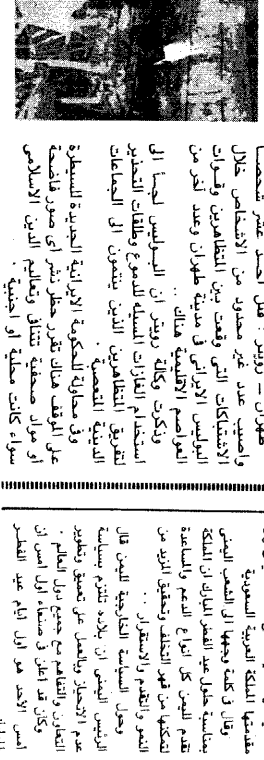 طهران – رويتر : قتل أحد عشر شخصا
وأصيب عدد غير محدود من الأشخاص خلال
الاشتباكات التي وقعت بين المتظاهرين وقوات
البوليس الايراني في مدينة طهران وعدد آخر من
العواصم الاقليمية هناك . .
وذكرت وكالة رويتر ان البوليس لجأ الى
استخدام الغازات المسيلة للدموع وطلقات التحذير
لتفريق المتظاهرين الذين ينتمون الى الجماعات
الدينية المتعصبة .
وفي محاولة للحكومة الايرانية الجديدة للسيطرة
على الموقف هناك تقرر حظر نشر أى صور فاضحة
أو مواد صحفية تتنافى وتعاليم الدين الاسلامى
سواء كانت محلية أو أجنبية .
مقدمتها المملكة العربية السعودية
وقال في كلمة وجهها الى الشعب اليمنى
بمناسبة حلول عيد الفطر المبارك ان المملكة
تقدم لليمن كل انواع الدعم والمساعدة
لتمكنها من قهر التخلف وتحقيق المزيد من
النمو والتقدم والاستقرار . .
وحول السياسة الخارجية لليمن قال
الرئيس اليمنى ان بلاده تلتزم بسياسة
عدم الانحياز وبالعمل على تعميق وتطوير
التعاون والتفاهم مع جميع دول العالم .
وكان قد أعلن في صنعاء أول أمس أن
أمس الأحد هو أول أيام عيد الفطر